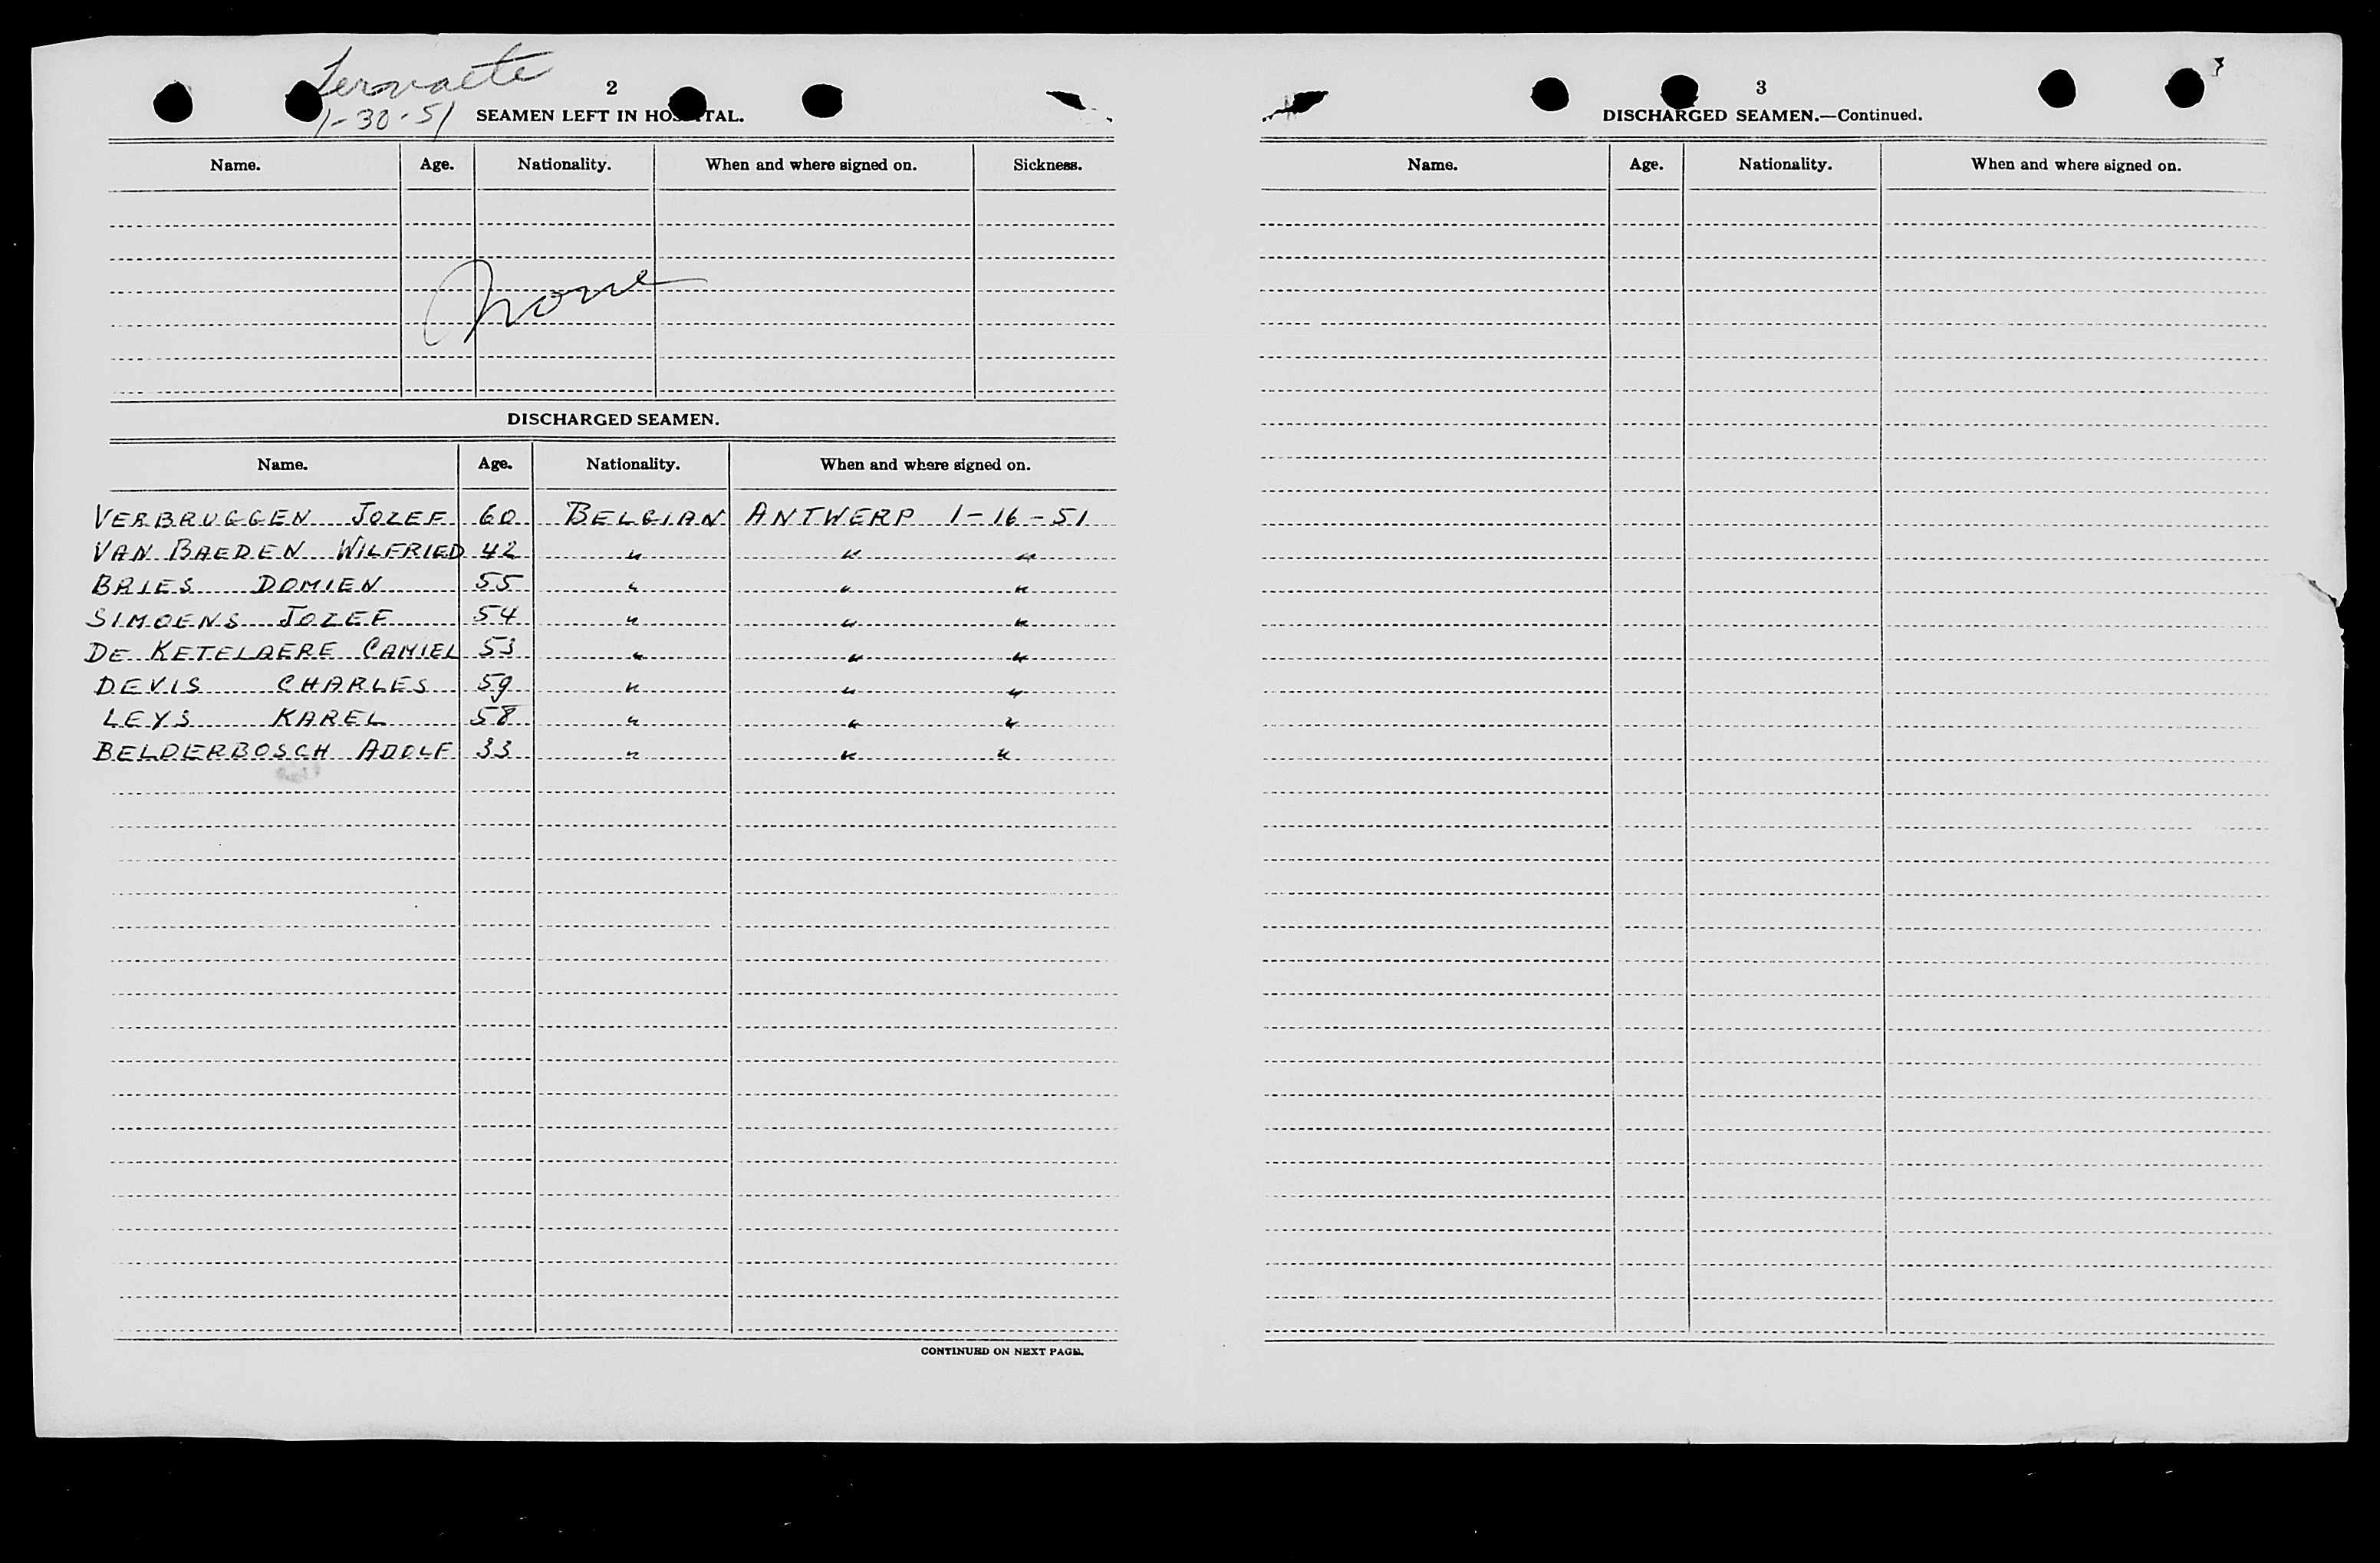 Tervaete
1-30-51
2
SEAMEN LEFT IN HOSPITAL.
Name. Age. Nationality. When and where signed on. Sickness.
None
DISCHARGED SEAMEN.
Name. Age. Nationality. When and where signed on.
VERBRUGGEN JOZEF 60 BELGIAN ANTWERP 1-16-51
VAN BAEDEN WILFRIED 42 " " "
BRIES DOMIEN 55 " " "
SIMOENS JOZEF 54 " " "
DE KETELAERE CAMIEL 53 " " "
DEVIS CHARLES 59 " " "
LEYS KAREL 58 " " "
BELDERBOSCH ADOLF 33 " " "
CONTINUED ON NEXT PAGE.
3
3
DISCHARGED SEAMEN.—Continued.
Name. Age. Nationality. When and where signed on.